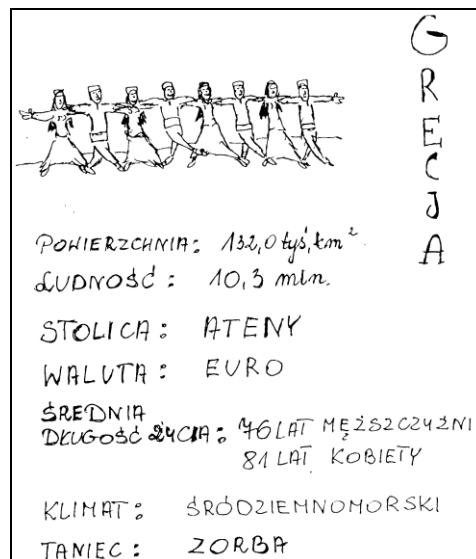 GRECJA
POWIERZCHNIA: 132,0 tyś, km²
LUDNOŚĆ: 10,3 mln.
STOLICA: ATENY
WALUTA: EURO
ŚREDNIA
DŁUGOŚĆ ŻYCIA: 76 LAT MĘŻSZCZYŹNI
81 LAT KOBIETY
KLIMAT: ŚRÓDZIEMNOMORSKI
TANIEC: ZORBA